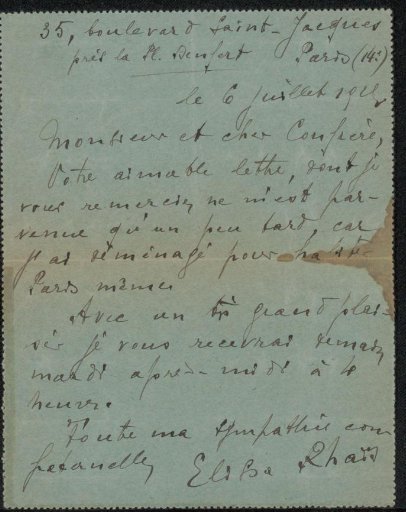 35, boulevard Saint-Jacques
près la Pl. Denfert Paris (14e)
le 6 juillet
Monsieur et cher Confrère,
Votre aimable lettre, dont je
vous remercie, ne m'est par-
venue qu'un peu tard, car
j'ai déménagé pour
Paris même.
Avec un très grand plai-
sir je vous recevrai demain
mardi après-midi à 4
heures.
Toute ma sympathie con
fraternelle,
Elissa Rhaïs